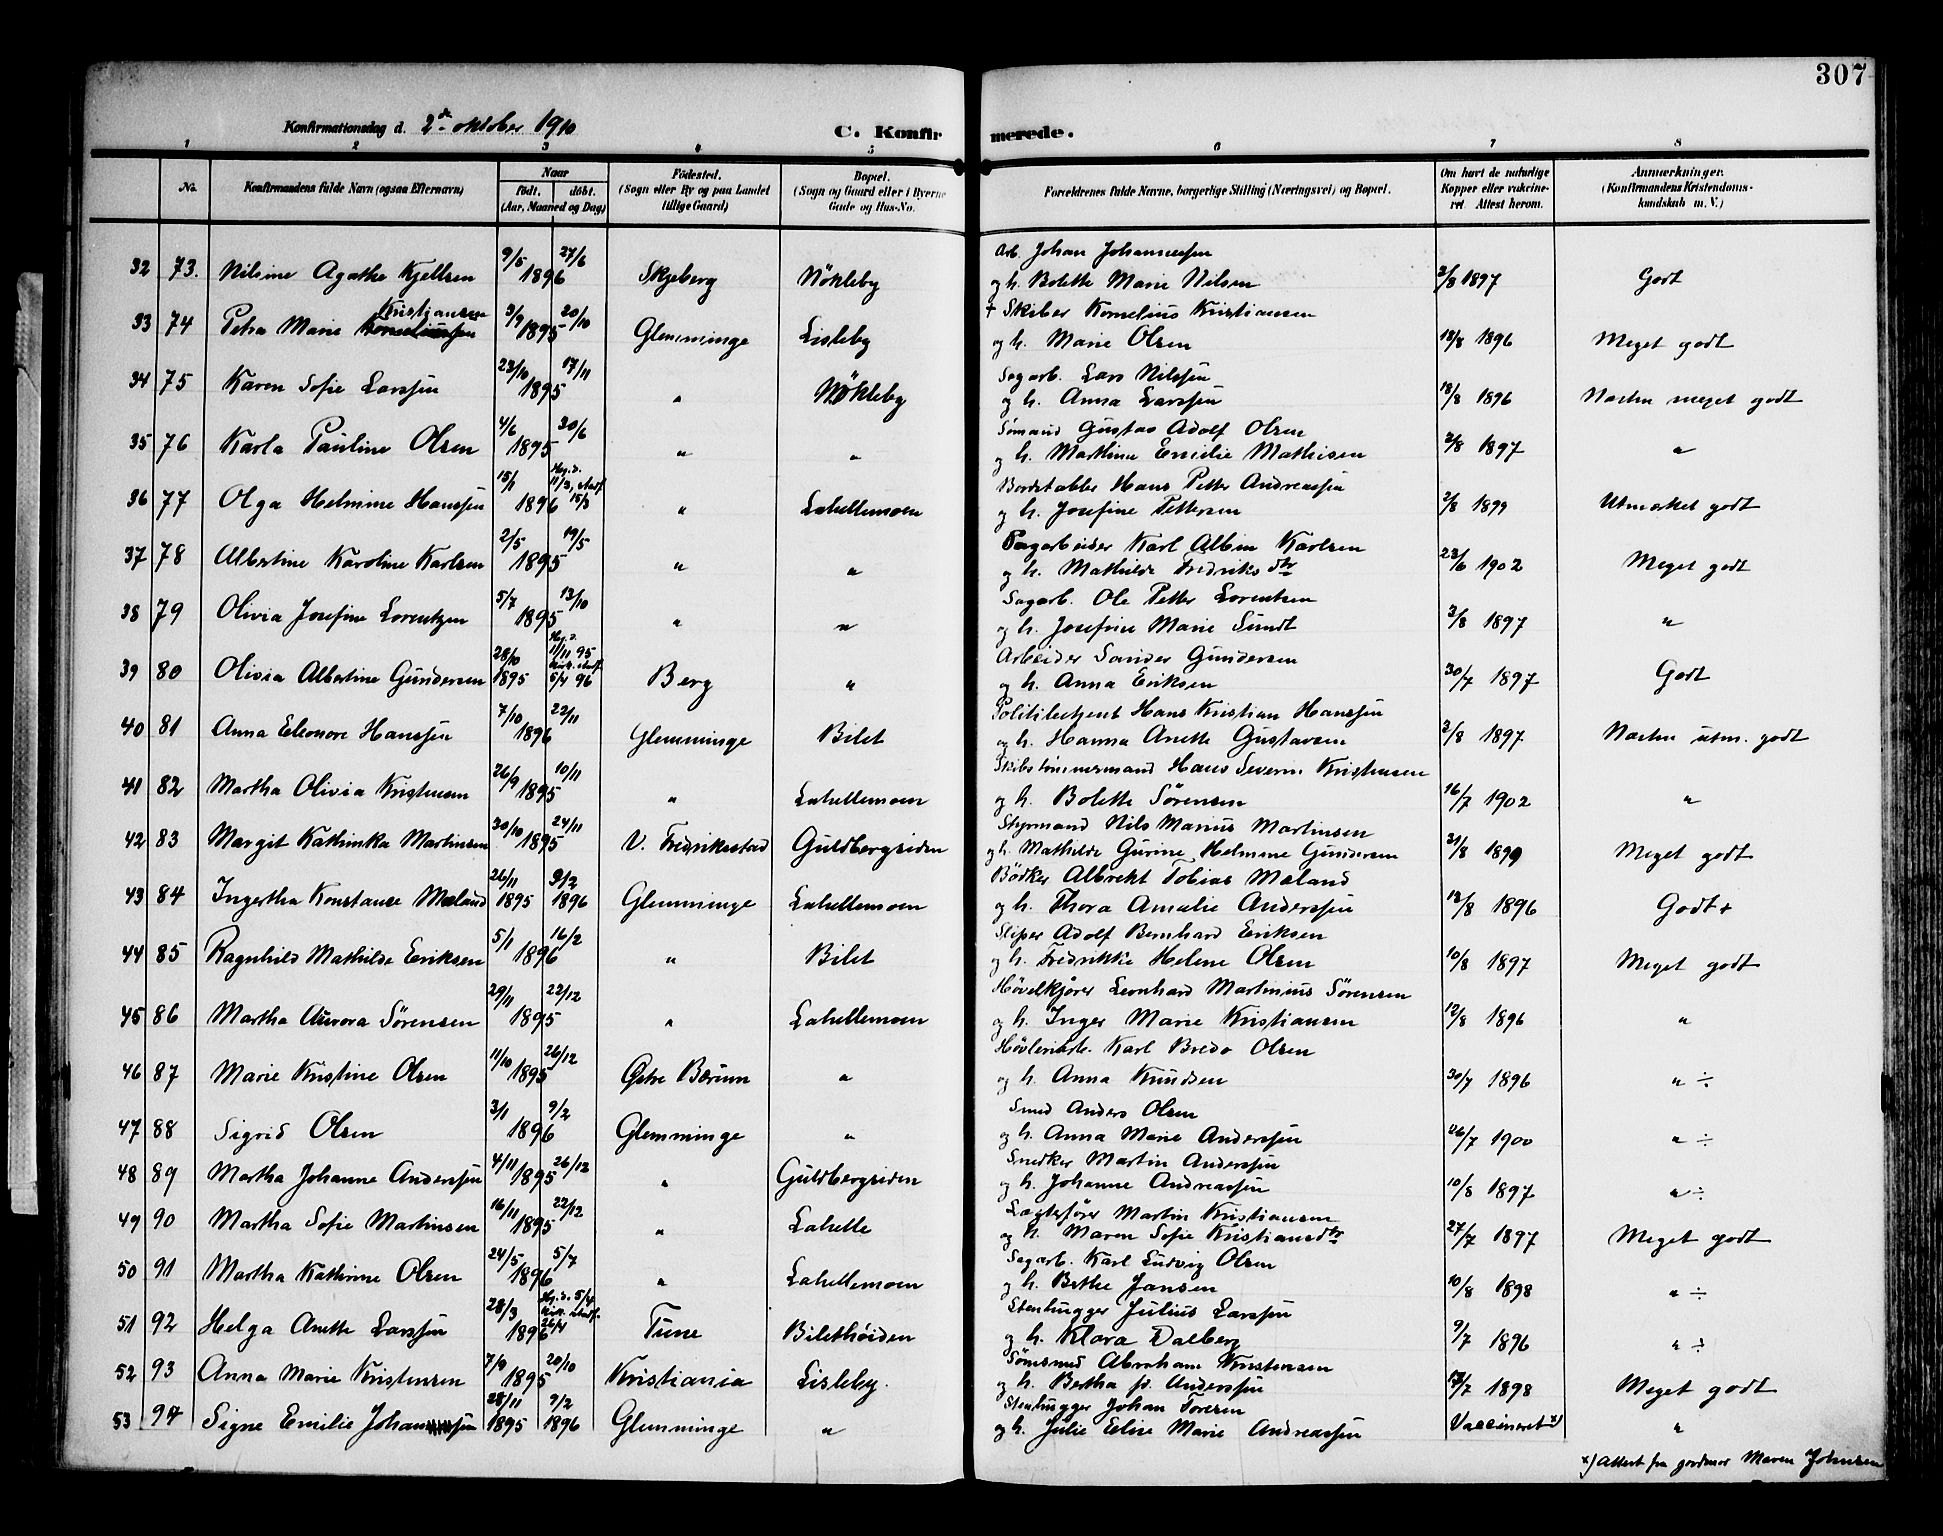 307
Konfirmationsdag d. 2den oktober 1910
C. Konfirmerede.
1 2 3 4 5 6 7 8
No.
Konfirmandens fulde Navn (ogsaa Efternavn)
Naar
født. døbt.
(Aar, Maaned og Dag)
Fødested.
(Sogn eller By og paa Landet
tillige Gaard)
Bopæl.
(Sogn og Gaard eller i Byerne
Gade og Hus-No.
Forældrenes fulde Navne, borgerlige Stilling (Næringsvei) og Bopæl.
Om havt de naturlige
Kopper eller vakcine-
ret Attest herom.
Anmærkninger.
(Konfirmandens Kristendoms-
kundskab m. V.)
9/5 27/6 Arb. Johan Johannessen
32 73. Nilsine Agathe Kjellsen 1896 Skjeberg Nökleby og h. Bolette Marie Nilsen 2/8 1897 Godt
Kristiansen 3/9 20/10 + Skiber Kornelius Kristiansen
33 74 Petra Marie 1895 Glemminge Lisleby og h. Marie Olsen 18/8 1896 Meget godt
23/10 17/11 Sagarb. Lars Nilssen
34 75 Karen Sofie Larssen 1895 " Nökleby og h. Anna Larssen 18/8 1896 Næsten meget godt
4/6 30/6 Sömand Gustav Adolf Olsen
35 76 Karla Pauline Olsen 1895 " " og h. Marthine Emilie Mathisen 2/8 1897 "
15/1 Hj.d. 11/3, stadf. 15/3 Bordstabler Hans Petter Andreassen
36 77 Olga Helmine Hanssen 1896 " Lahellemoen og h. Josefine Pettersen 2/8 1899 Utmerket godt
2/5 19/5 Sagarbeider Karl Albin Karlsen
37 78 Albertine Karoline Karlsen 1895 " " og h. Mathilde Fredriksdtr 23/6 1902 Meget godt
5/7 13/10 Sagarb. Ole Petter Lorentzen
38 79 Olivia Josefine Lorentzen 1895 " " og h. Josefine Marie Sundt 3/8 1897 "
28/10 Hj.d. 11/11 95 kirk. stadf. Arbeider Sander Gundersen
39 80 Olivia Albertine Gundersen 1895 5/4 96 Berg " og h. Anna Eriksen 30/7 1897 Godt
7/10 22/11 Politibetjent Hans Kristian Hanssen
40 81 Anna Eleonore Hanssen 1896 Glemminge Bilet og h. Hanna Anette Gustavsen 2/8 1897 Næsten utm. godt
26/9 10/11 Skibstömmermand Hans Severin Kristensen
41 82 Martha Olivia Kristensen 1895 " Lahellemoen og h. Bolette Sörensen 16/7 1902 "
30/10 24/11 Styrmand Nils Marius Martinsen
42 83 Margit Kathinka Martinsen 1895 V. Fredrikstad Guldbergsiden og h. Mathilde Gurine Helmine Gundersen 31/8 1899 Meget godt
26/11 9/2 Bödker Albrekt Tobias Mæland
43 84 Ingertha Konstanse Mæland 1895 1896 Glemminge Lahellemoen og h. Thora Amalie Anderssen 12/8 1896 Godt+
5/1 16/2 Sliper Adolf Bernhard Eriksen
44 85 Ragnhild Mathilde Eriksen 1896 " Bilet og h. Fredrikke Helene Olsen 10/8 1897 Meget godt
29/11 22/12 Hövelkjörer Leonhard Martinius Sörensen
45 86 Martha Aurora Sörensen 1895 " Lahellemoen og h. Inger Marie Kristiansen 12/8 1896 "
11/10 26/12 Hövleriarb. Karl Bredo Olsen
46 87 Marie Kristine Olsen 1895 Östre Bærum " og h. Anna Knudsen 30/7 1896 " ÷
3/1 9/2 Smed Anders Olsen
47 88 Sigrid Olsen 1896 Glemminge " og h. Anna Marie Anderssen 26/7 1900 " ÷
4/11 26/12 Snedker Martin Anderssen
48 89 Martha Johanne Anderssen 1895 " Guldbergsiden og h. Johanne Andreassen 10/8 1897 " ÷
16/11 22/12 Lægterfører Martin Kristiansen
49 90 Martha Sofie Martinsen 1895 " Lahelle og h. Maren Sofie Kristiansdtr 27/7 1897 Meget godt
24/5 5/7 Sagarb. Karl Ludvig Olsen
50 91 Martha Kathrine Olsen 1896 " Lahellemoen og h. Berthe Jansen 10/8 1898 " ÷
28/3 Hj.d. 5/4 kirk. stadf. 26/4 Stenhugger Julius Larssen
51 92 Helga Anette Larssen 1896 Tune Bilethöiden og h. Klara Dalberg 9/7 1896 " ÷
7/9 20/10 Sömsmed Abraham Kristensen
52 93 Anna Marie Kristensen 1895 Kristiania Lisleby. og h. Bertha f. Anderssen /7 1898 Meget godt
28/11 9/2 Stenhugger Johan Toresen
53 94 Signe Emilie Johanssen 1895 1896 Glemminge " og h. Julie Eline Marie Andreassen Vaccineret x) "
x) Attest fra gordmor Maren Johnsen